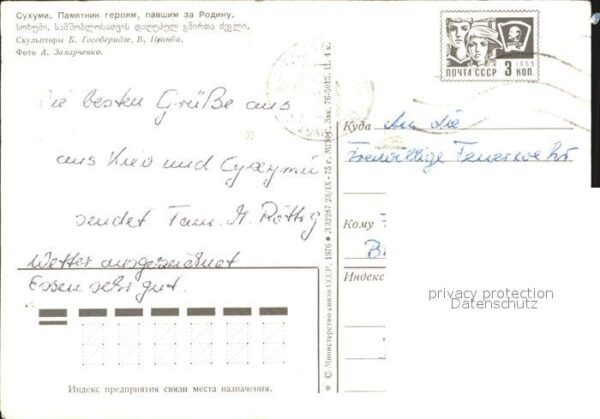 Сухуми. Памятник героям, павшим за Родину.
სოხუმი. სამშობლოსათვის დაღუპულ გმირთა ძეგლი.
Скульпторы Б. Гогоберидзе, В. Иванба.
Фото А. Захарченко.
ПОЧТА СССР 3 КОП.
1966
Die besten Grüße aus
aus Kiew und Сухуми
sendet Fam. M. Röttig
Wetter ausgezeichnet
Essen sehr gut.
Куда An die
Freiwillige Feuerwehr
Кому
Индекс
privacy protection
Datenschutz
* © Министерство связи СССР, 1976 * Л 32287 23/IX-75 г. МПФГ. Зак. 76-5015. Ц. 4 к.
Индекс предприятия связи места назначения.